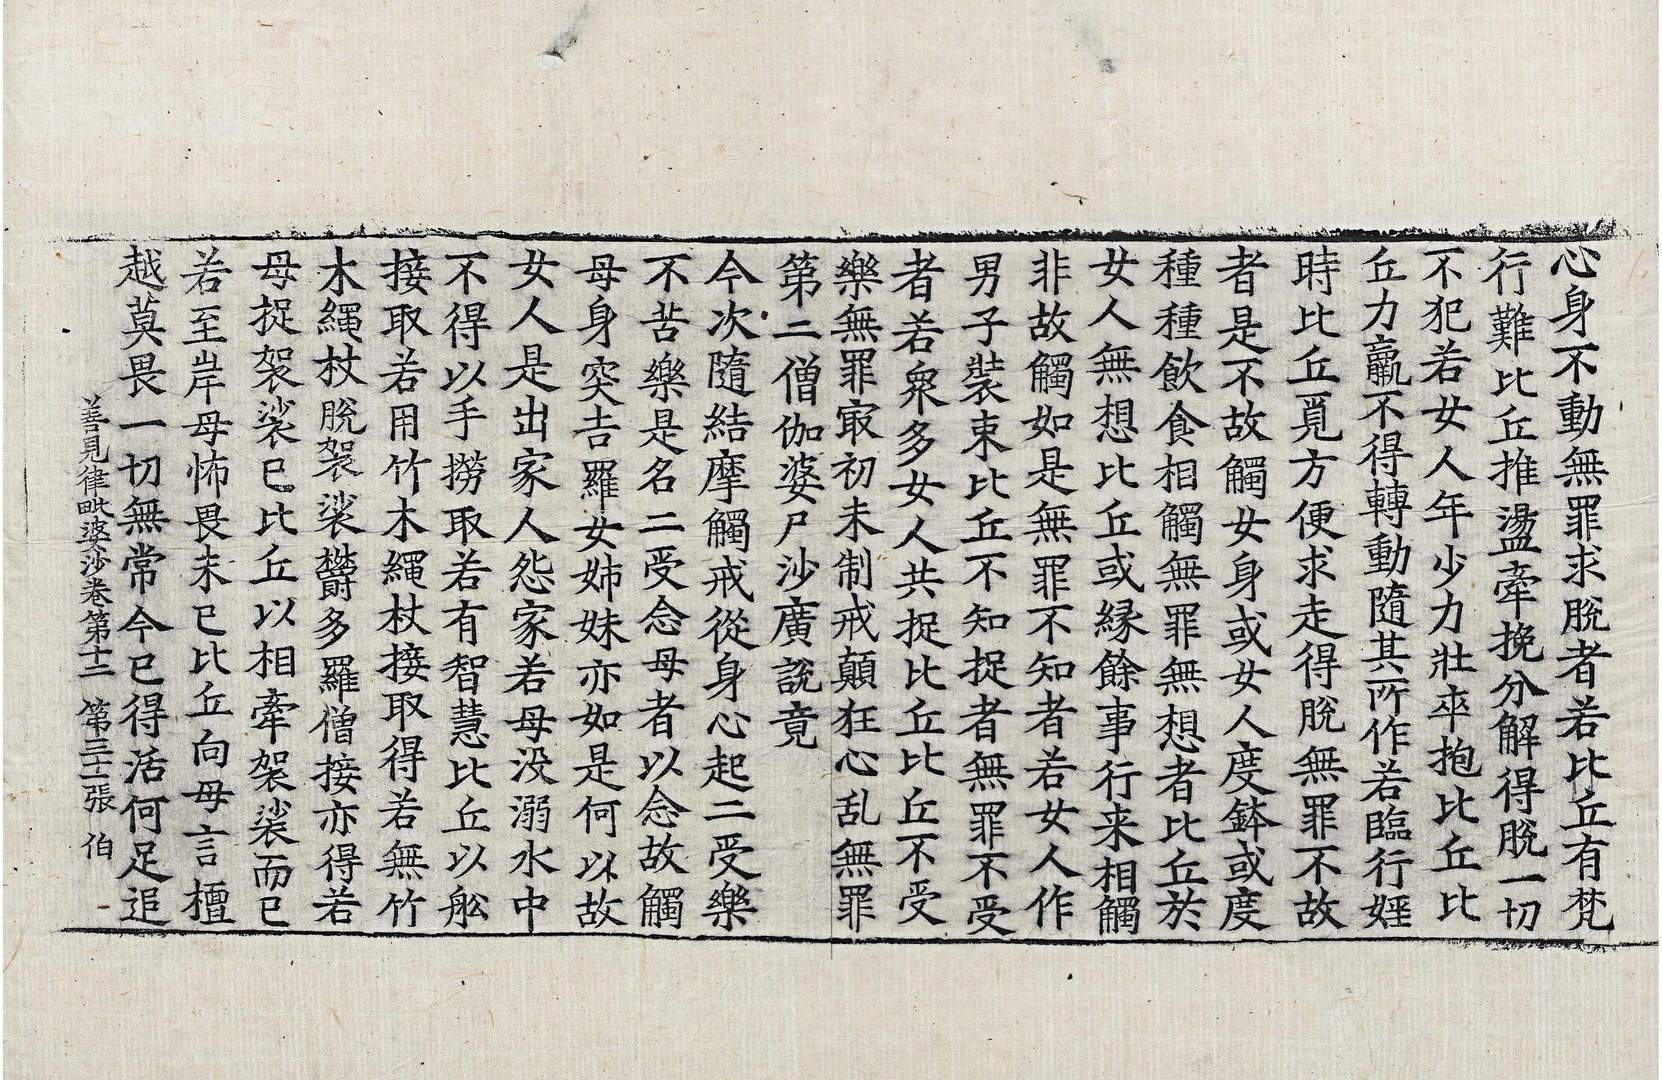 心身不動無罪求脫者若比丘有梵
行難比丘推盪牽挽分解得脫一切
不犯若女人年少力壯卒抱比丘比
丘力羸不得轉動隨其所作若臨行婬
時比丘覓方便求走得脫無罪不故
者是不故觸女身或女人度鉢或度
種種飲食相觸無罪無想者比丘於
女人無想比丘或緣餘事行来相觸
非故觸如是無罪不知者若女人作
男子裝束比丘不知捉者無罪不受
者若衆多女人共捉比丘比丘不受
樂無罪㝡初未制戒顛狂心乱無罪
第二僧伽婆尸沙廣說竟
今次隨結摩觸戒從身心起二受樂
不苦樂是名二受念母者以念故觸
母身突吉羅女姊妹亦如是何以故
女人是出家人怨家若母没溺水中
不得以手撈取若有智慧比丘以舩
接取若用竹木繩杖接取得若無竹
木繩杖脫袈裟欝多羅僧接亦得若
母捉袈裟已比丘以相牽袈裟而已
若至岸母怖畏未已比丘向母言檀
越莫畏一切無常今已得活何足追
善見律毗婆沙卷第十二 第三十二張 伯